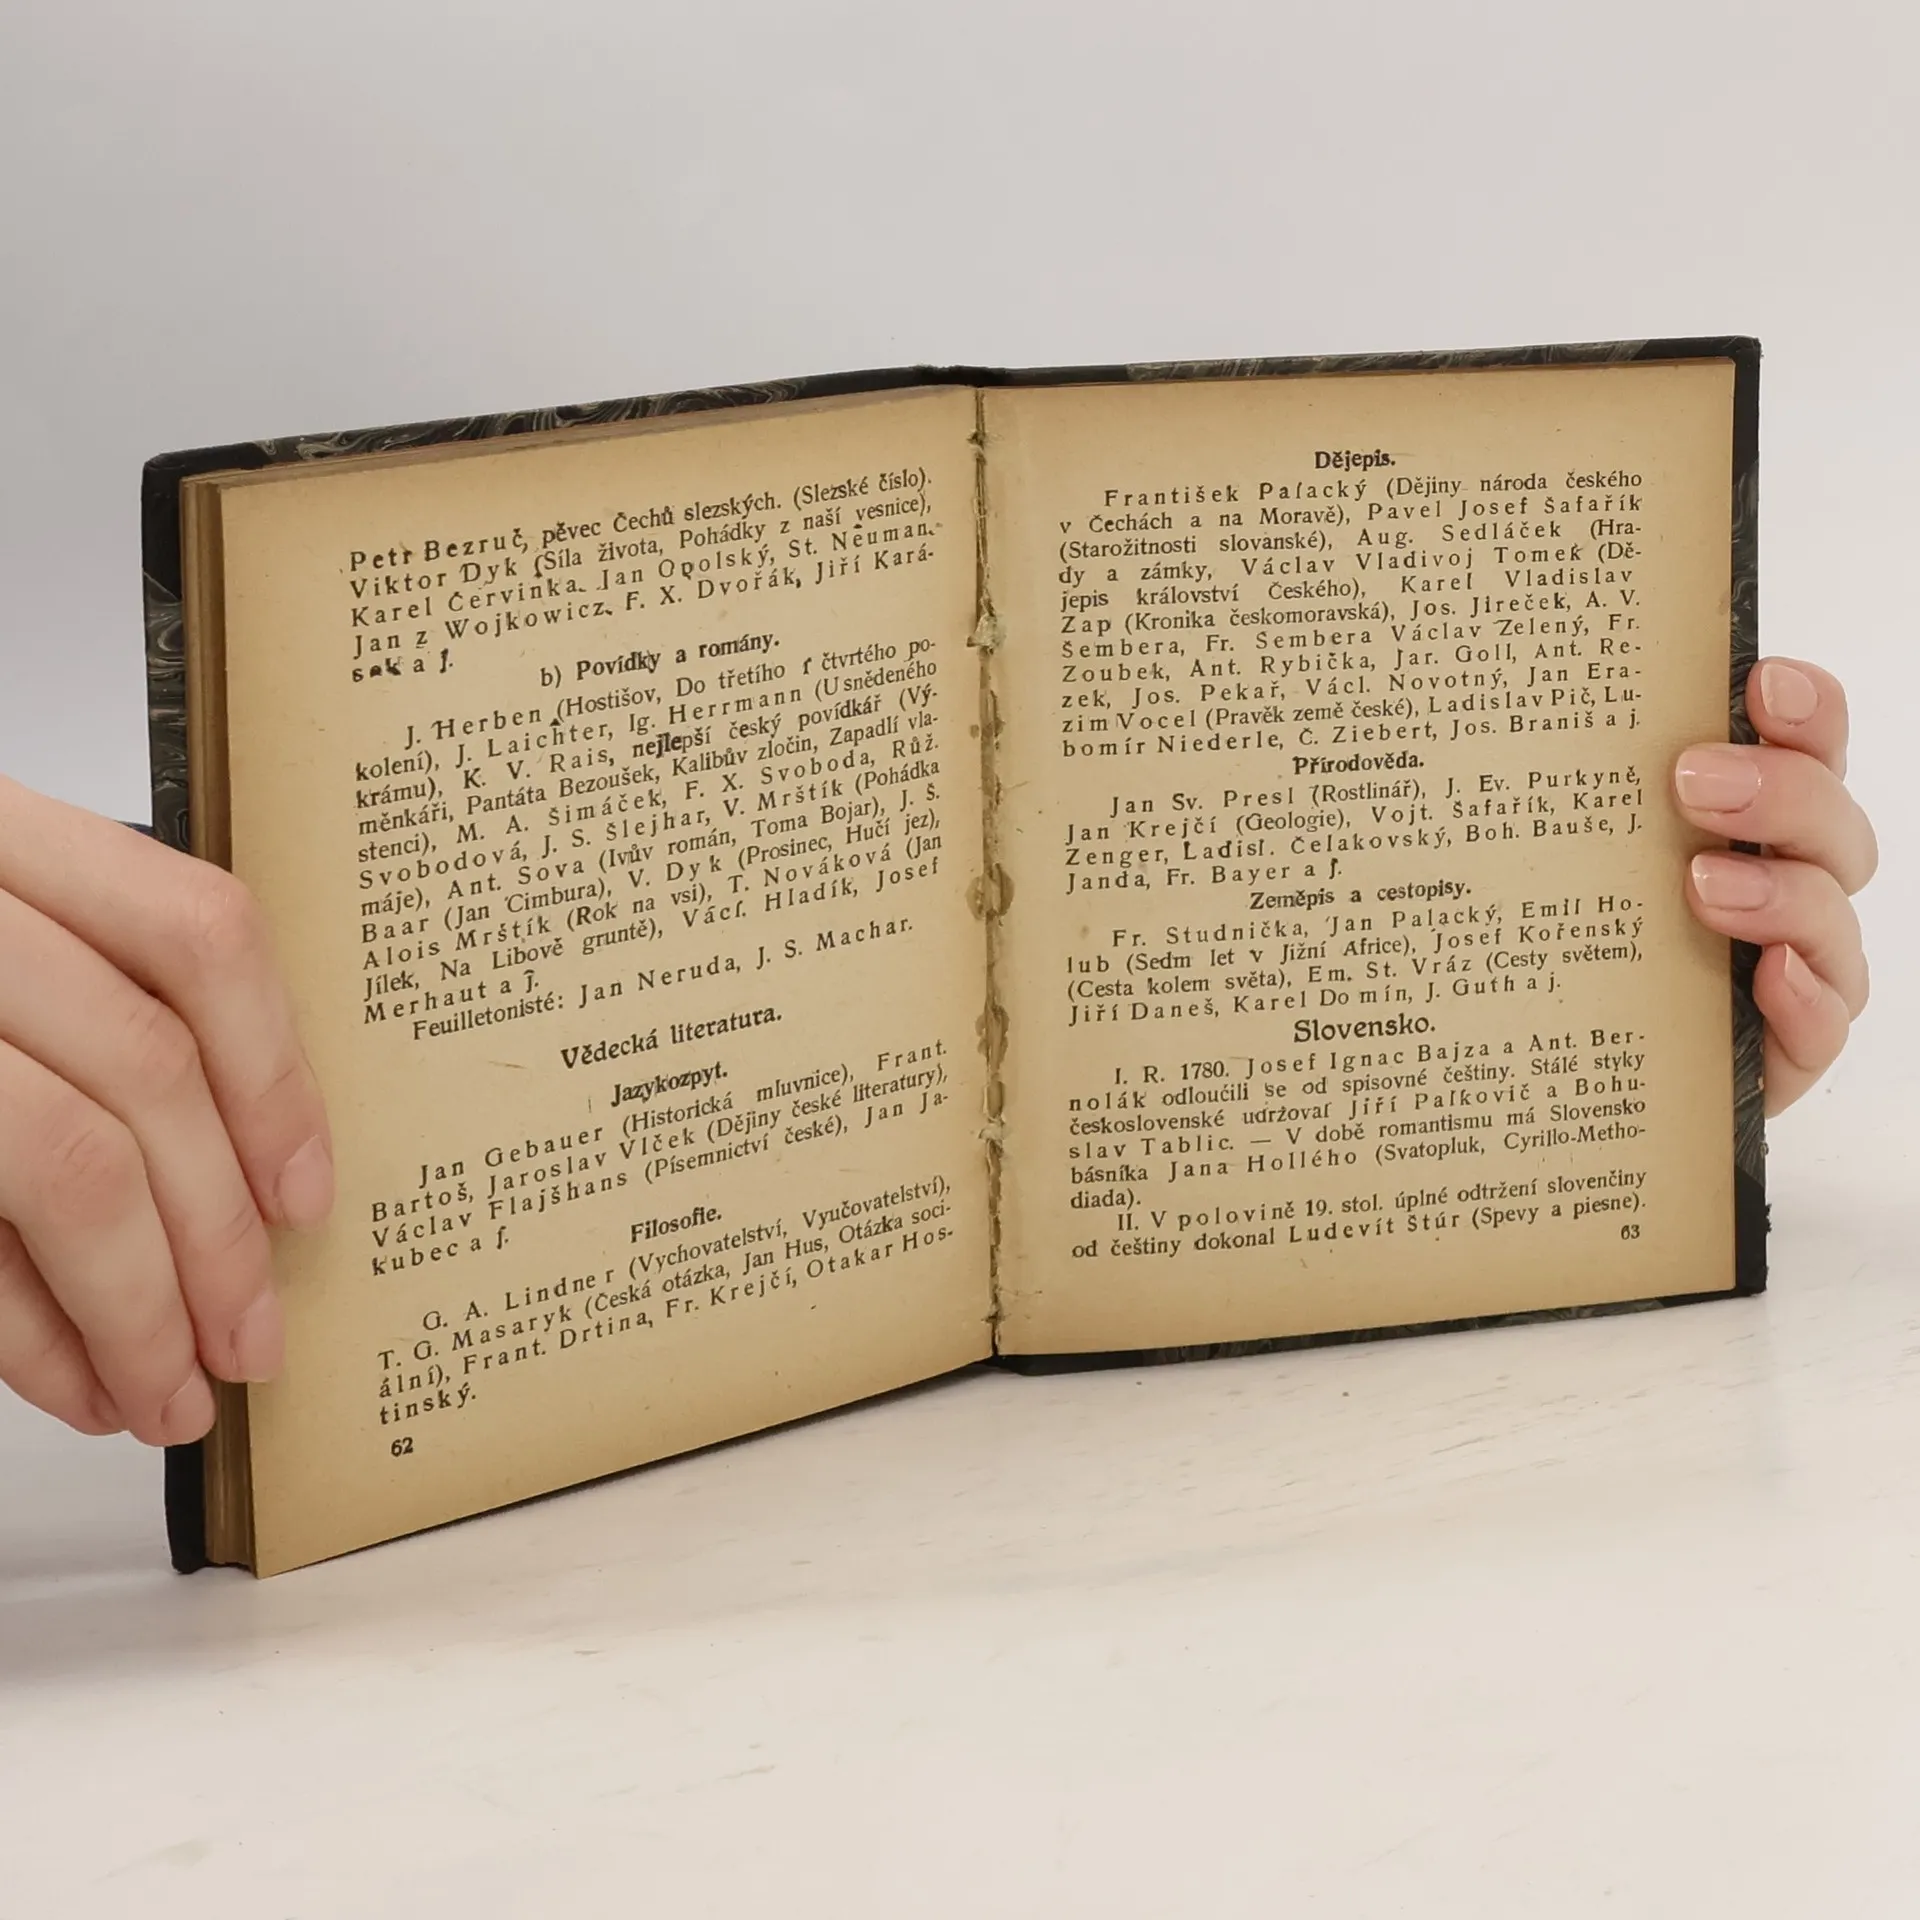 Petr Bezruč, pěvec Čechů slezských. (Slezské číslo).
Viktor Dyk (Síla života, Pohádky z naší vesnice),
Karel Červinka, Jan Opolský, St. Neuman.
Jan z Wojkowicz, F. X. Dvořák, Jiří Kará-
sek a j.
b) Povídky a romány.
J. Herben (Hostišov, Do třetího i čtvrtého po-
kolení), J. Laichter, Ig. Herrmann (U snědeného
krámu), K. V. Rais, nejlepší český povídkář (Vý-
měnkáři, Pantáta Bezoušek, Kalibův zločin, Zapadlí vla-
stenci), M. A. Šimáček, F. X. Svoboda, Růž.
Svobodová, J. S. Šlejhar, V. Mrštík (Pohádka
máje), Ant. Sova (Ivův román, Toma Bojar), J. Š.
Baar (Jan Cimbura), V. Dyk (Prosinec, Hučí jez),
Alois Mrštík (Rok na vsi), T. Nováková (Jan
Jílek, Na Libově gruntě), Václ. Hladík, Josef
Merhaut a j.
Feuilletonisté: Jan Neruda, J. S. Machar.
Vědecká literatura.
Jazykozpyt.
Jan Gebauer (Historická mluvnice), Frant.
Bartoš, Jaroslav Vlček (Dějiny české literatury),
Václav Flajšhans (Písemnictví české), Jan Ja-
kubec a j.
Filosofie.
G. A. Lindner (Vychovatelství, Vyučovatelství),
T. G. Masaryk (Česká otázka, Jan Hus, Otázka soci-
ální), Frant. Drtina, Fr. Krejčí, Otakar Hos-
tinský.
62
Dějepis.
František Palacký (Dějiny národa českého
v Čechách a na Moravě), Pavel Josef Šafařík
(Starožitnosti slovanské), Aug. Sedláček (Hra-
dy a zámky, Václav Vladivoj Tomek (Dě-
jepis království Českého), Karel Vladislav
Zap (Kronika českomoravská), Jos. Jireček, A. V.
Šembera, Fr. Šembera Václav Zelený, Fr.
Zoubek, Ant. Rybička, Jar. Goll, Ant. Re-
zek, Jos. Pekař, Václ. Novotný, Jan Era-
zim Vocel (Pravěk země české), Ladislav Pič, Lu-
bomír Niederle, Č. Ziebert, Jos. Braniš a j.
Přírodověda.
Jan Sv. Presl (Rostlinář), J. Ev. Purkyně,
Jan Krejčí (Geologie), Vojt. Šafařík, Karel
Zenger, Ladisl. Čelakovský, Boh. Bauše, J.
Janda, Fr. Bayer a j.
Zeměpis a cestopisy.
Fr. Studnička, Jan Palacký, Emil Ho-
lub (Sedm let v Jižní Africe), Josef Kořenský
(Cesta kolem světa), Em. St. Vráz (Cesty světem),
Jiří Daneš, Karel Domín, J. Guth a j.
Slovensko.
I. R. 1780. Josef Ignac Bajza a Ant. Ber-
nolák odloučili se od spisovné češtiny. Stálé styky
československé udržoval Jiří Palkovič a Bohu-
slav Tablic. — V době romantismu má Slovensko
básníka Jana Hollého (Svatopluk, Cyrillo-Metho-
diada).
II. V polovině 19. stol. úplné odtržení slovenčiny
od češtiny dokonal Ludevít Štúr (Spevy a piesne).
63